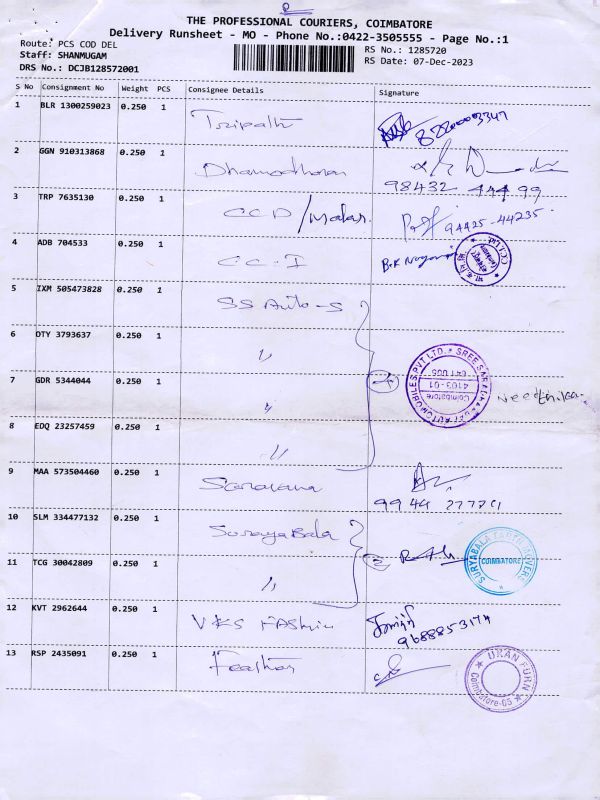 THE PROFESSIONAL COURIERS, COIMBATORE
Delivery Runsheet - MO - Phone No.:0422-3505555 - Page No.:1
Route: PCS COD DEL
RS No.: 1285720
Staff: SHANMUGAM
RS Date: 07-Dec-2023
DRS No.: DCJB128572001
S No Consignment No Weight PCS Consignee Details Signature
1 BLR 1300259023 0.250 1 Tripathi
2 GGN 910313868 0.250 1 Dhamodharan
98432 44499
3 TRP 7635130 0.250 1 CCD/Malar. 94425-44235
4 ADB 704533 0.250 1 CC-I
5 IXM 505473828 0.250 1 SS Auto-S
6 OTY 3793637 0.250 1 "
7 GDR 5344044 0.250 1 " 4
SREE SARADHA AUTOMOBILES PVT LTD.
4103-01
Coimbatore
8 EDQ 23257459 0.250 1 "
9 MAA 573504460 0.250 1 Saravana
10 SLM 334477132 0.250 1 SuryaBala
11 TCG 30042809 0.250 1 " 2
SURYABALA EARTH MOVERS
COIMBATORE
12 KVT 2962644 0.250 1 VKS Fashion
9688853174
13 RSP 2435091 0.250 1 Feather
URAN FURN
Coimbatore-65